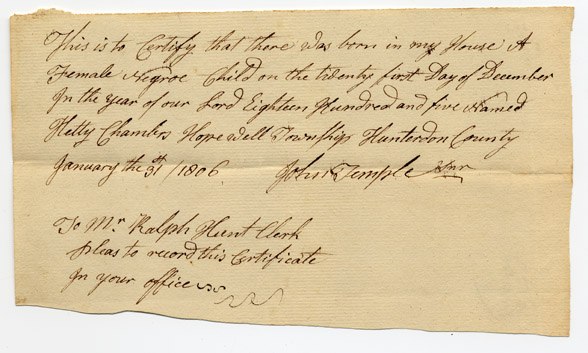 This is to Certify that there was born in my House A
Female Negroe Child on the twenty first Day of December
In the year of our Lord Eighteen Hundred and five Named
Hetty Chambers Hope well Township Hunterdon County
January the 31st / 1806 John Temple
To Mr Ralph Hunt Clerk
pleas to record this Certificate
In your office